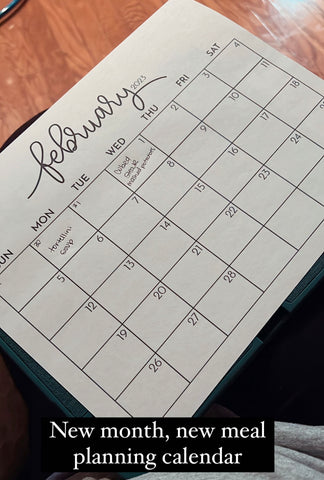 february 2023
UN MON TUE WED THU FRI SAT
30 31 1 2 3 4
tortellini
soup
cubed
steak
mashed potatoes
5 6 7 8 9 10 11
12 13 14 15 16 17
19 20 21 22 23 24
26 27 28
New month, new meal
planning calendar